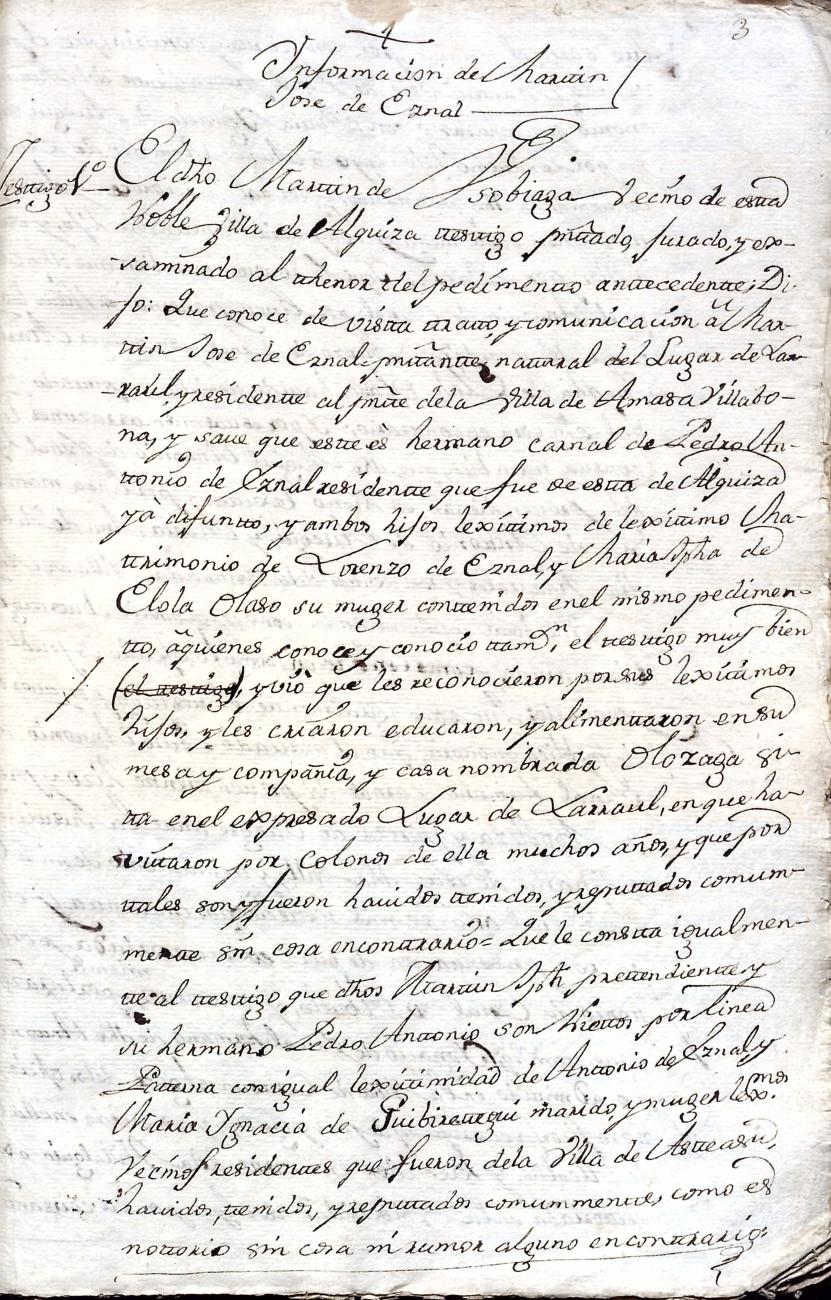 3
Informacion de Martin
Jose de Eznal
Testigo 1º
El dho Martin de Ysobiaga Vecino de esta
Noble Villa de Alquiza testigo pntado, jurado, y ex-
saminado al thenor del pedimento antecedente; Di-
jo: Que conoce de vista tratto, y comunicacion à Mar-
tin Jose de Eznal pntante, natural del Lugar de Lar-
raul y residente al pnte de la Villa de Amasa Villabo-
na, y save que este ès hermano carnal de Pedro An-
tonio de Eznal residente que fue de esta de Alquiza
yà difunto, y ambos hijos lexitimos de lexitimo Ma-
trimonio de Lorenzo de Eznal, y Maria Jpha de
Elola Olaso su muger contenidos en el mismo pedimen-
to, àquienes conoce y conocio tamvn el testigo muy bien
(el testigo), y viò que les reconocieron por sus lexitimos
hijos, y les criaron educaron, y alimentaron en su
mesa y compañia, y casa nombrada Olozaga si-
ta en el expresado Lugar de Larraul, en que ha-
vitaron por Colonos de ella muchos años, y que por
tales son y fueron havidos tenidos, y reputtados comum-
mente sin cosa encontrario = Que le consta igualmen-
te al testigo que dhos Martin Jph pretendiente y
su hermano Pedro Antonio son Nietos por linea
Paterna con igual lexitimidad de Antonio de Eznal y
Maria Ygnacia de Guibiraegui marido, y muger lexmos
Vecinos residentes que fueron de la Villa de Asteasu,
havidos, tenidos, y resputtados comummente, como es
nottorio sin cosa ni rumor alguno encontrario: